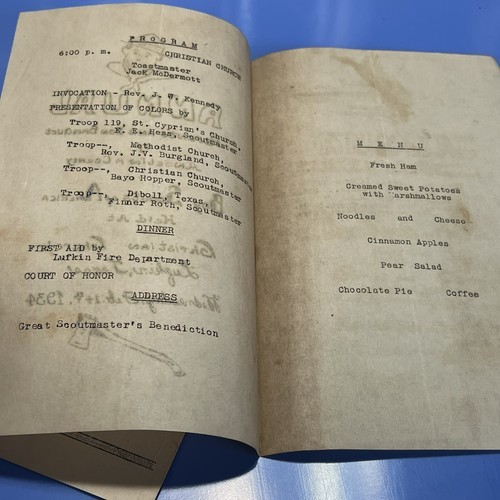 P R O G R A M
6:00 p. m. CHRISTIAN CHURCH
Toastmaster
Jack McDermott
INVOCATION - Rev. J. W. Kennedy
PRESENTATION OF COLORS by
Troop 119, St. Cyprian's Church,
E. E. Hess, Scoutmaster
Troop--, Methodist Church,
Rev. J.V. Burgland, Scoutmaster
Troop--, Christian Church,
Bayo Hopper, Scoutmaster
Troop--, Diboll, Texas,
Finner Roth, Scoutmaster
DINNER
FIRST AID by
Lufkin Fire Department
COURT OF HONOR
ADDRESS
Great Scoutmaster's Benediction
M E N U
Fresh Ham
Creamed Sweet Potatoes
with Marshmallows
Noodles and Cheese
Cinnamon Apples
Pear Salad
Chocolate Pie Coffee